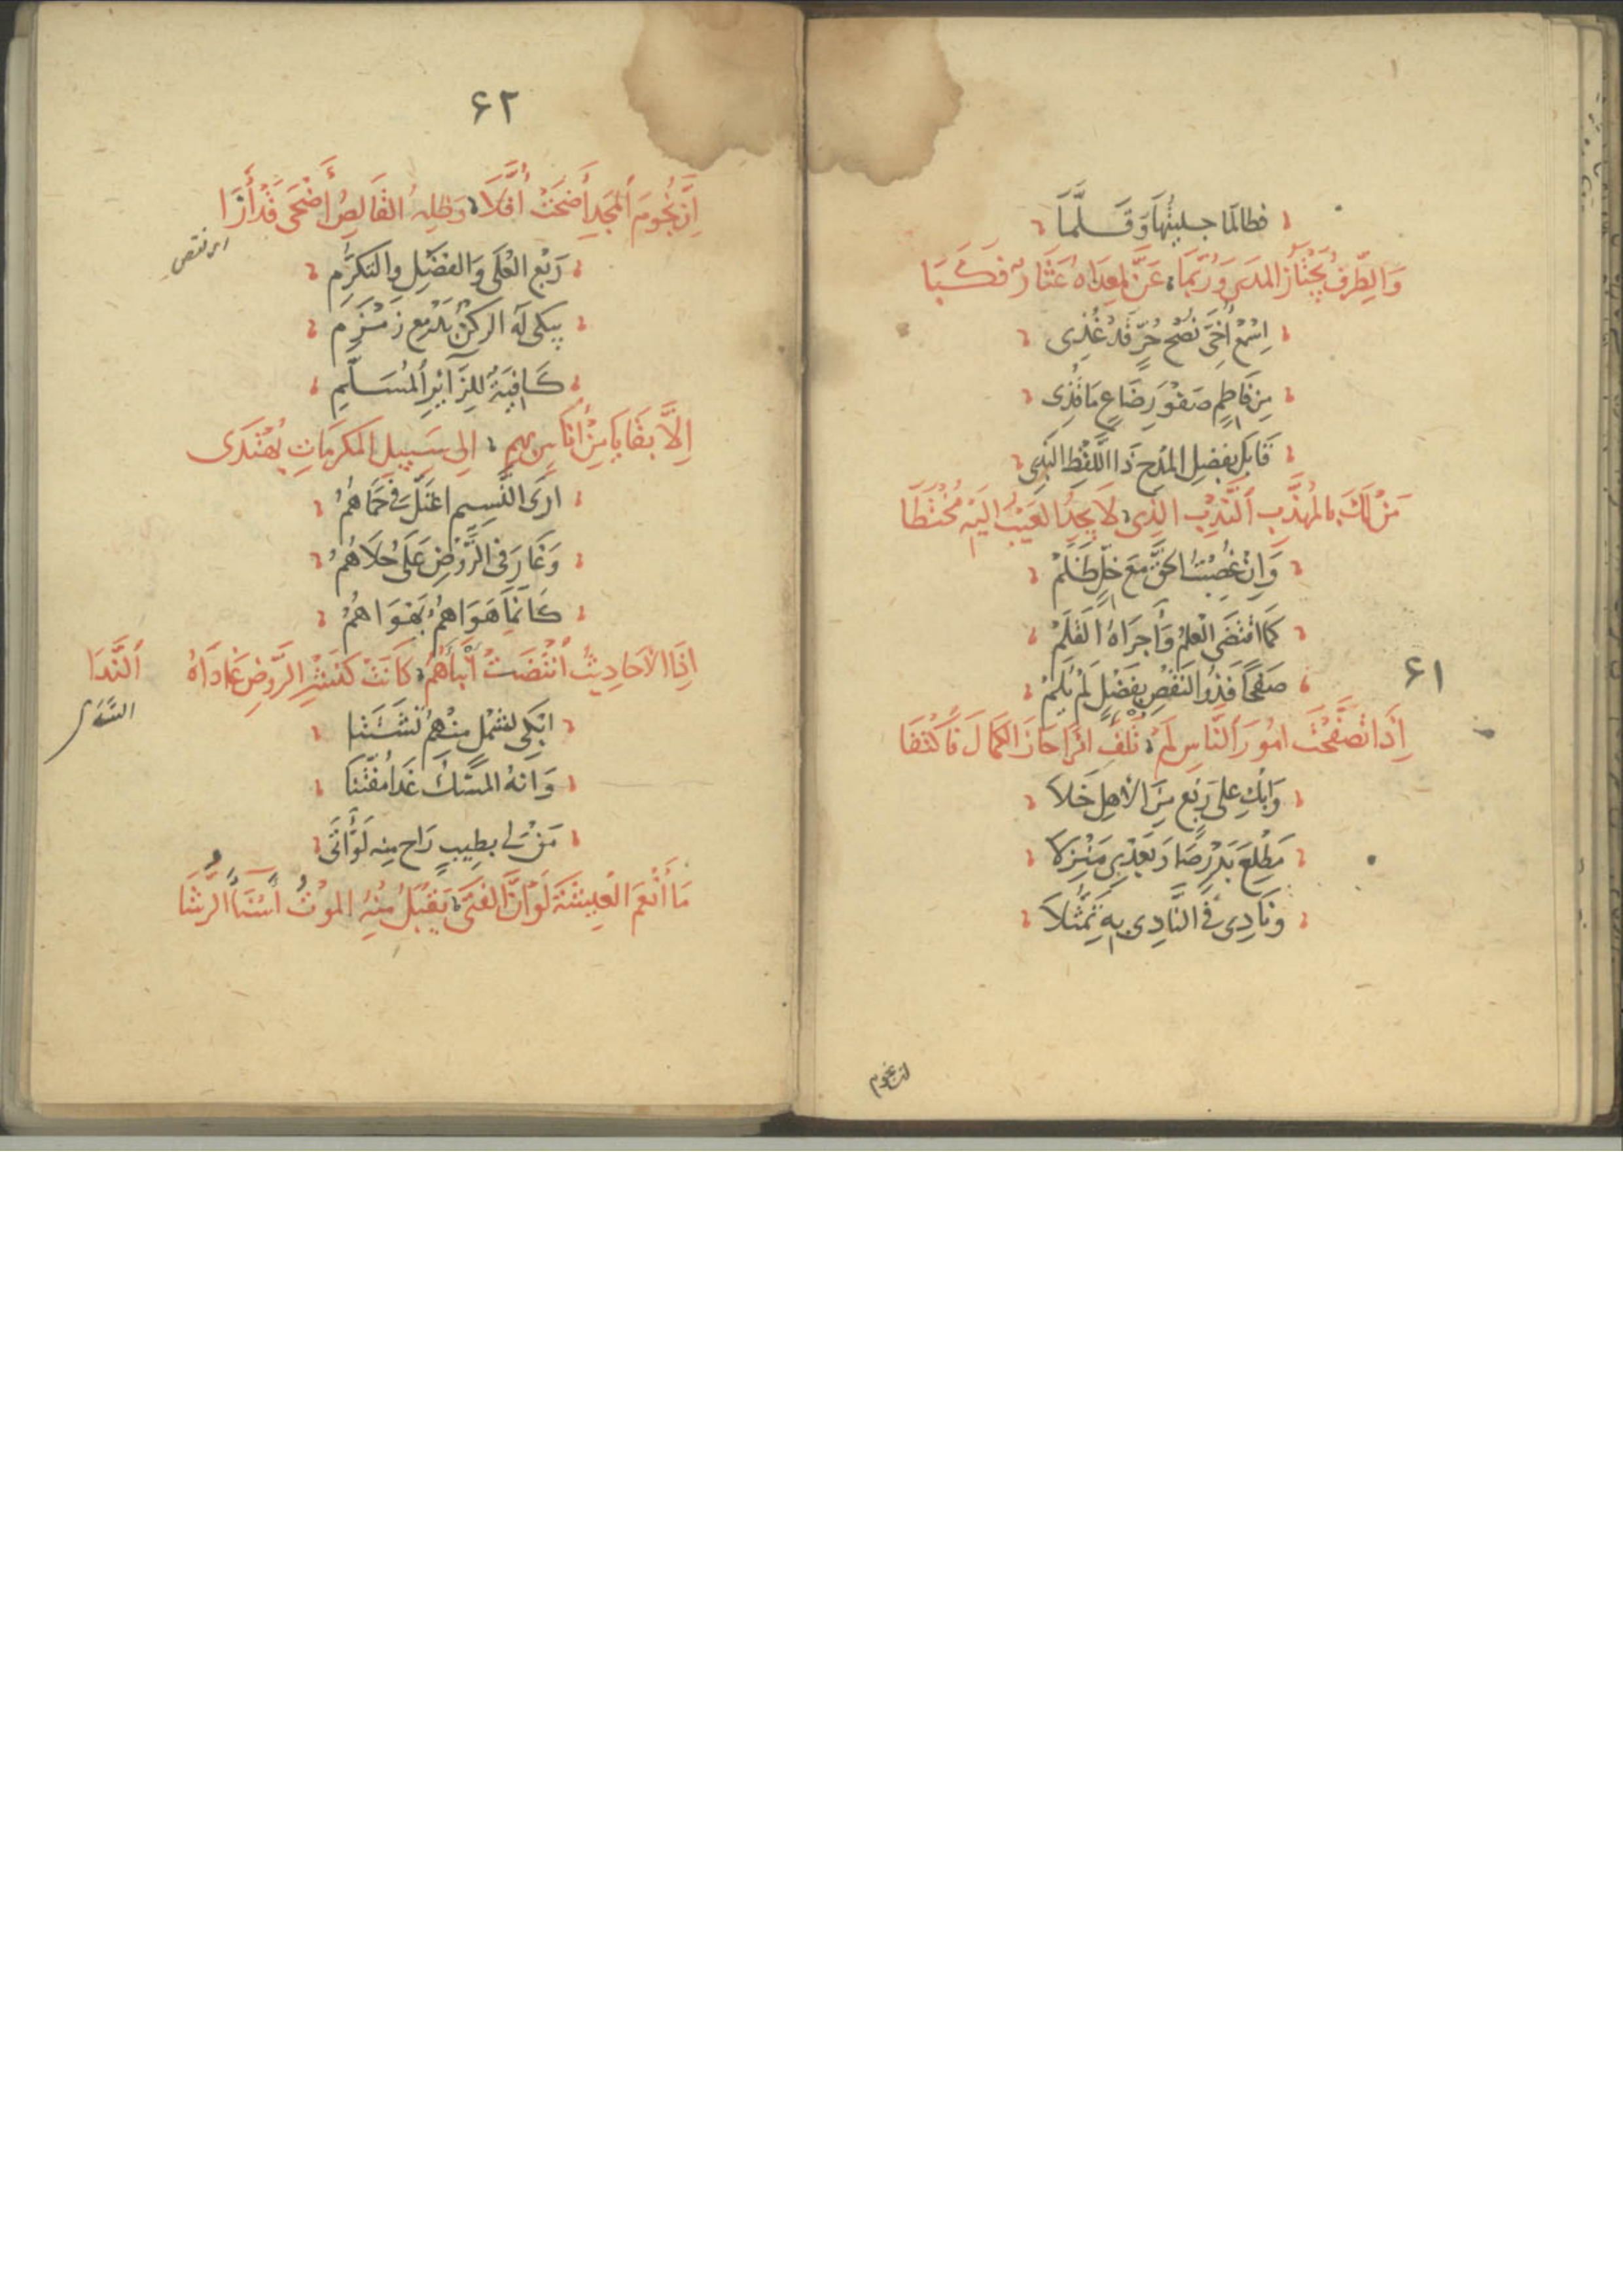 فطالَمَا جلبتُهَا وَقَلَّمَا
وَالطِّرفُ يَجْتَازُ المدَى وَرُبَّمَا عَنَّ لِمَعْدَاهُ عَثَار فَكَبَا
اِسْمَعْ أُخَيَّ نُصْحَ حُرٍّ قَدْ غُذِى
مِن فَاطِمٍ صَفْوَ رِضَاعٍ مَا قُذِى
قَابَل بِفضلِ المدْحِ ذَا اللَّفْظِ البَذِى
مَنْ لَكَ بِالمُهَذَّبِ النَّدْبِ الَّذِى لَا يَجِدُ العَيْبُ اِلَيْهِ مُخْتَطَا
وَاِنْ غُصِبْتَ الحَقَّ مَعَ خِلٍّ ظَلَمْ
كَمَا اقتَضَى الْعِلمُ وَأجرَاهُ القَلَمْ
۶۱
صَفْحًا فَذُو النَّقْصِ بِفَضْلٍ لَمْ يُلَمْ
اِذَا تَصَفَّحْتَ امُورَ النَّاسِ لَمْ تُلْفِ امْرَأً حَازَ الكَمَالَ فَاكْتَفَا
وَابْكِ عَلى رَبْعٍ مِنَ الأهلِ خَلَا
مَطْلِعَ بَدْرٍ صَارَ بَعْدِى مَنْزِلَا
وَنَادِى فِى النَّادِى بِهِ تَمَثُّلَا
ان نجوم
۶۲
اِنَّ نُجُومَ المَجْدِ أَضحَتْ أُفَّلًا وَظِلُّهُ القَالِصُ أَضْحَى قَدْ أَزَا
رَبْع العُلَى وَالفَضْلِ وَالتكَرُّمِ
يبكى لَهُ الركنُ بدَمْعِ زَمْزَمِ
للزَّائِرِ المُسَلِّمِ
اِلَّا بَقَايَا مِنْ أُنَاسٍ بِهِمِ اِلى سَبِيلِ المَكرَمَاتِ يُقْتَدَى
ارَى النَّسِيم اعْتَلَّ فِى حِمَاهُمُ
وَغَارَ فِى الرَّوْضِ عَلَى حُلَاهُمُ
كَانَّمَا هَوَاهُمُ بَهَوَاهُمُ
اِذَا الأحَادِيثُ انْتَضَتْ أَنْبَاءَهُمْ كَانَتْ كَنَشْرِ الرَّوْضِ غَادَاهُ النَّدَا
ابْكِى لشمْلٍ مِنْهُمُ تَشَتَّتَا
وَانهُ المسْكُ غَدَا مُفَتَّتَا
مَنْ لِى بِطِيبٍ رَاح مِنه لَوْ أَتَى
مَا أَنْعَمَ الْعِيشَةَ لَوْ أنَّ الفَتَى يَقْبَلُ مِنْهُ المَوْتُ اَسْنَاءَ الرُّشَا